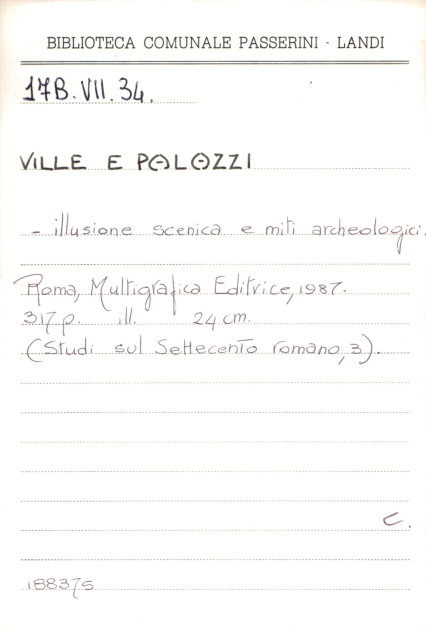 BIBLIOTECA COMUNALE PASSERINI - LANDI
17B.VII.34.
VILLE E PALAZZI
- illusione scenica e miti archeologici.
Roma, Multigrafica Editrice, 1987.
317 p. ill. 24 cm.
(Studi sul Settecento romano, 3).
C.
188375